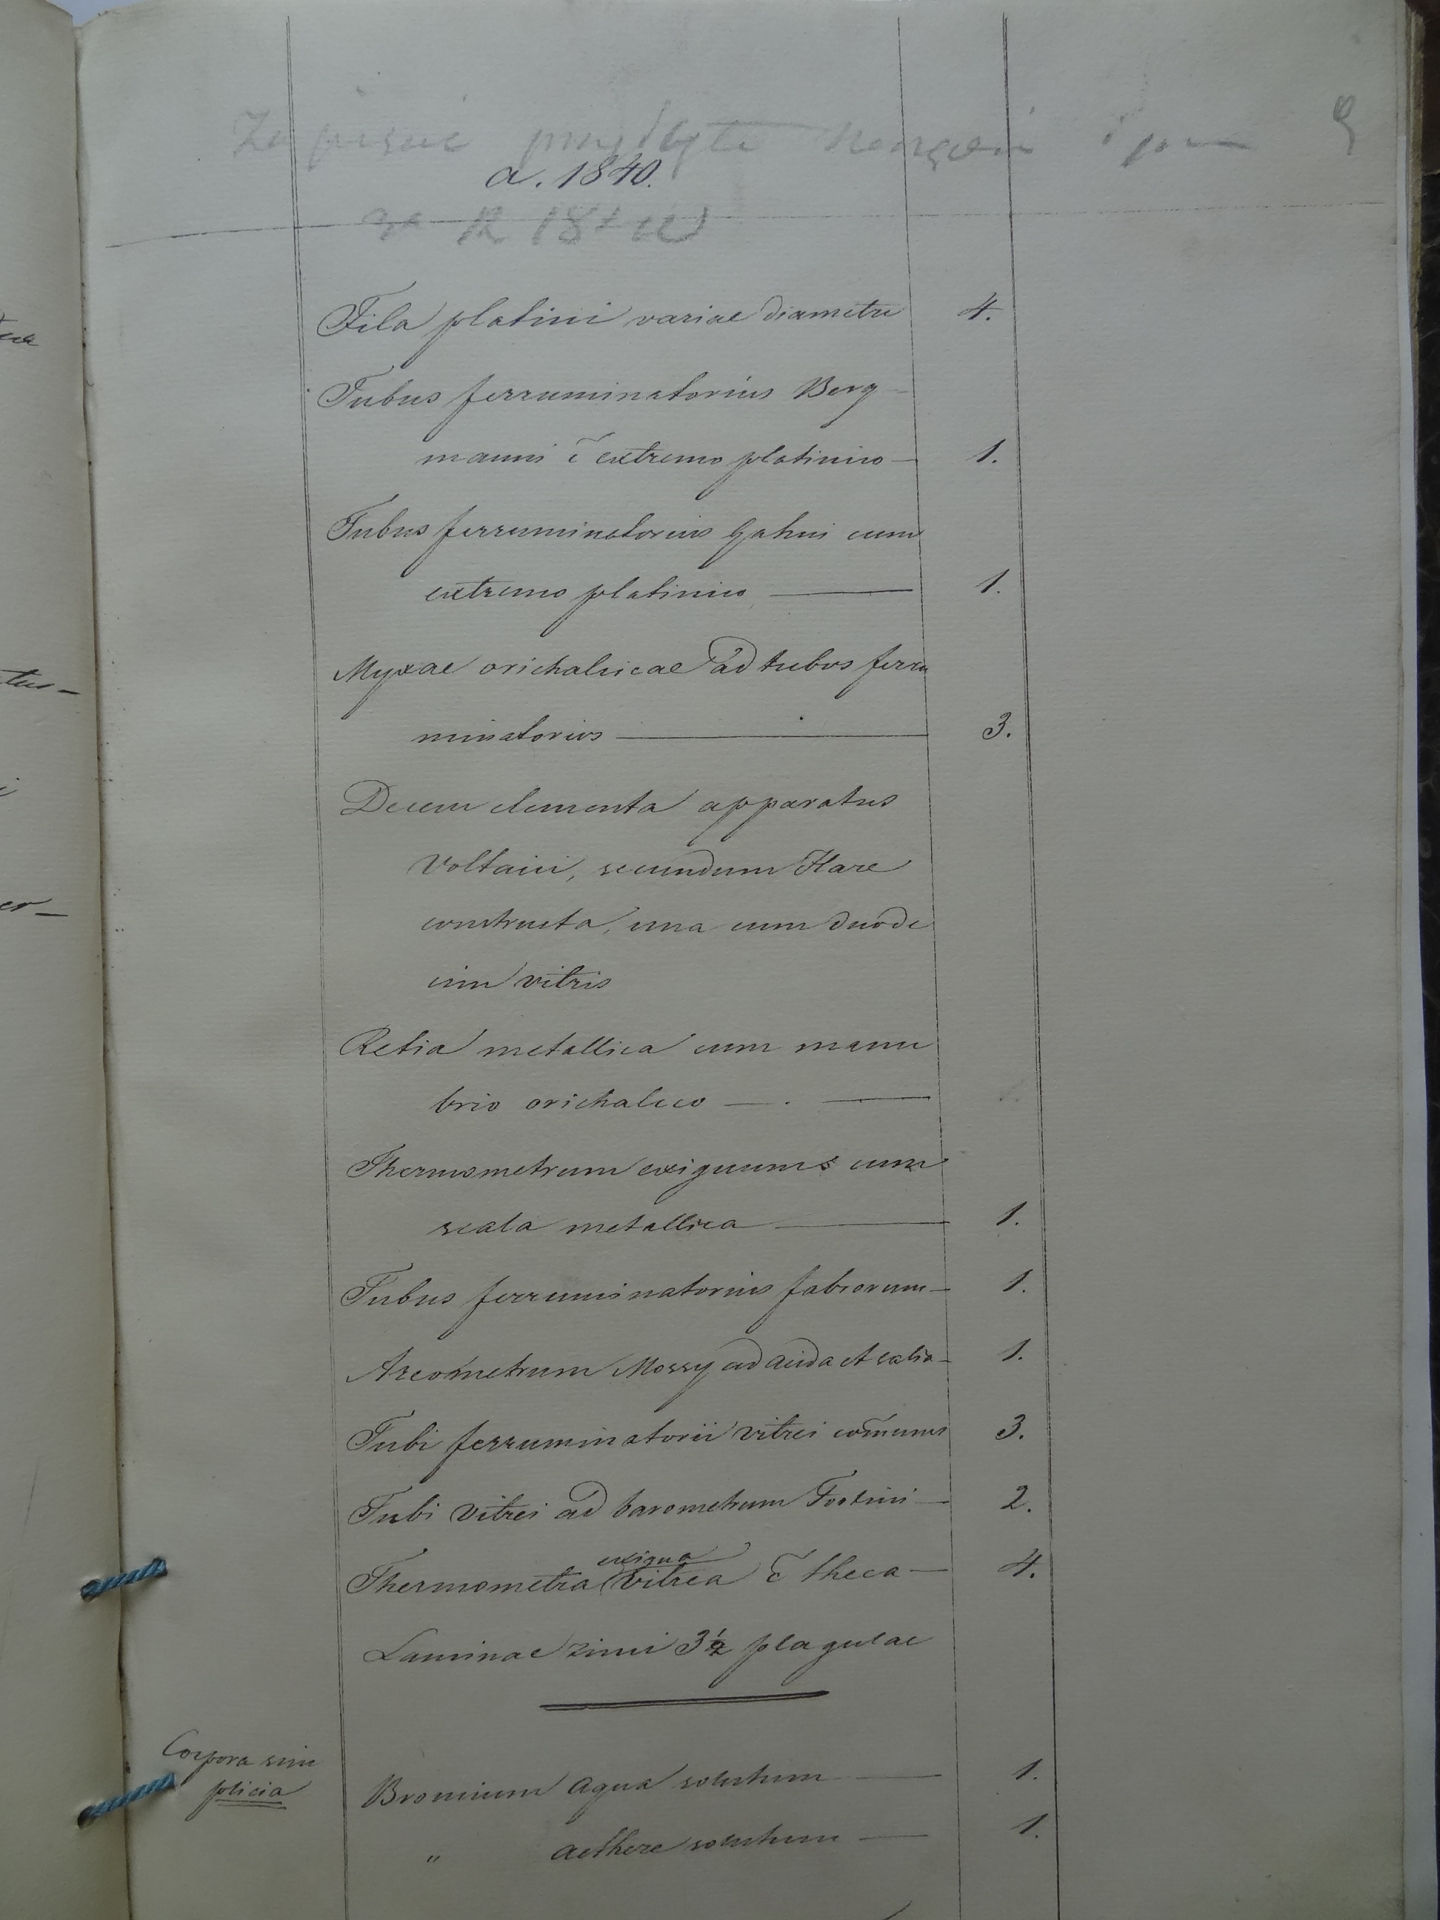 Zapisać przybyte
9
a. 1840.
Fila platini variae diametri 4.
Tubus ferruminatorius Berg-
manni c̄ extremo platinico — 1.
Tubus ferruminatorius Gahni cum
extremo platinico — 1.
Myxae orichalcicae ad tubos ferru
minatorios — 3.
Decem elementa apparatus
Voltaici, secundum Hare
constructa, una cum duode
cim vitris
Retia metallica cum manu
brio orichalceo — . —
Thermometrum exiguum cum
scala metallica — 1.
Tubus ferruminatorius fabrorum — 1.
Areometrum Mossy ad acida et salia — 1.
Tubi ferruminatorii vitrei com̄unes 3.
Tubi vitrei ad barometrum Fortini — 2.
exigua
Thermometra vitrea c̄ theca — 4.
Laminae zinci 3 1/2 plagulae
Corpora sim
plicia
Bromium aqua solutum — 1.
" aethere solutum — 1.